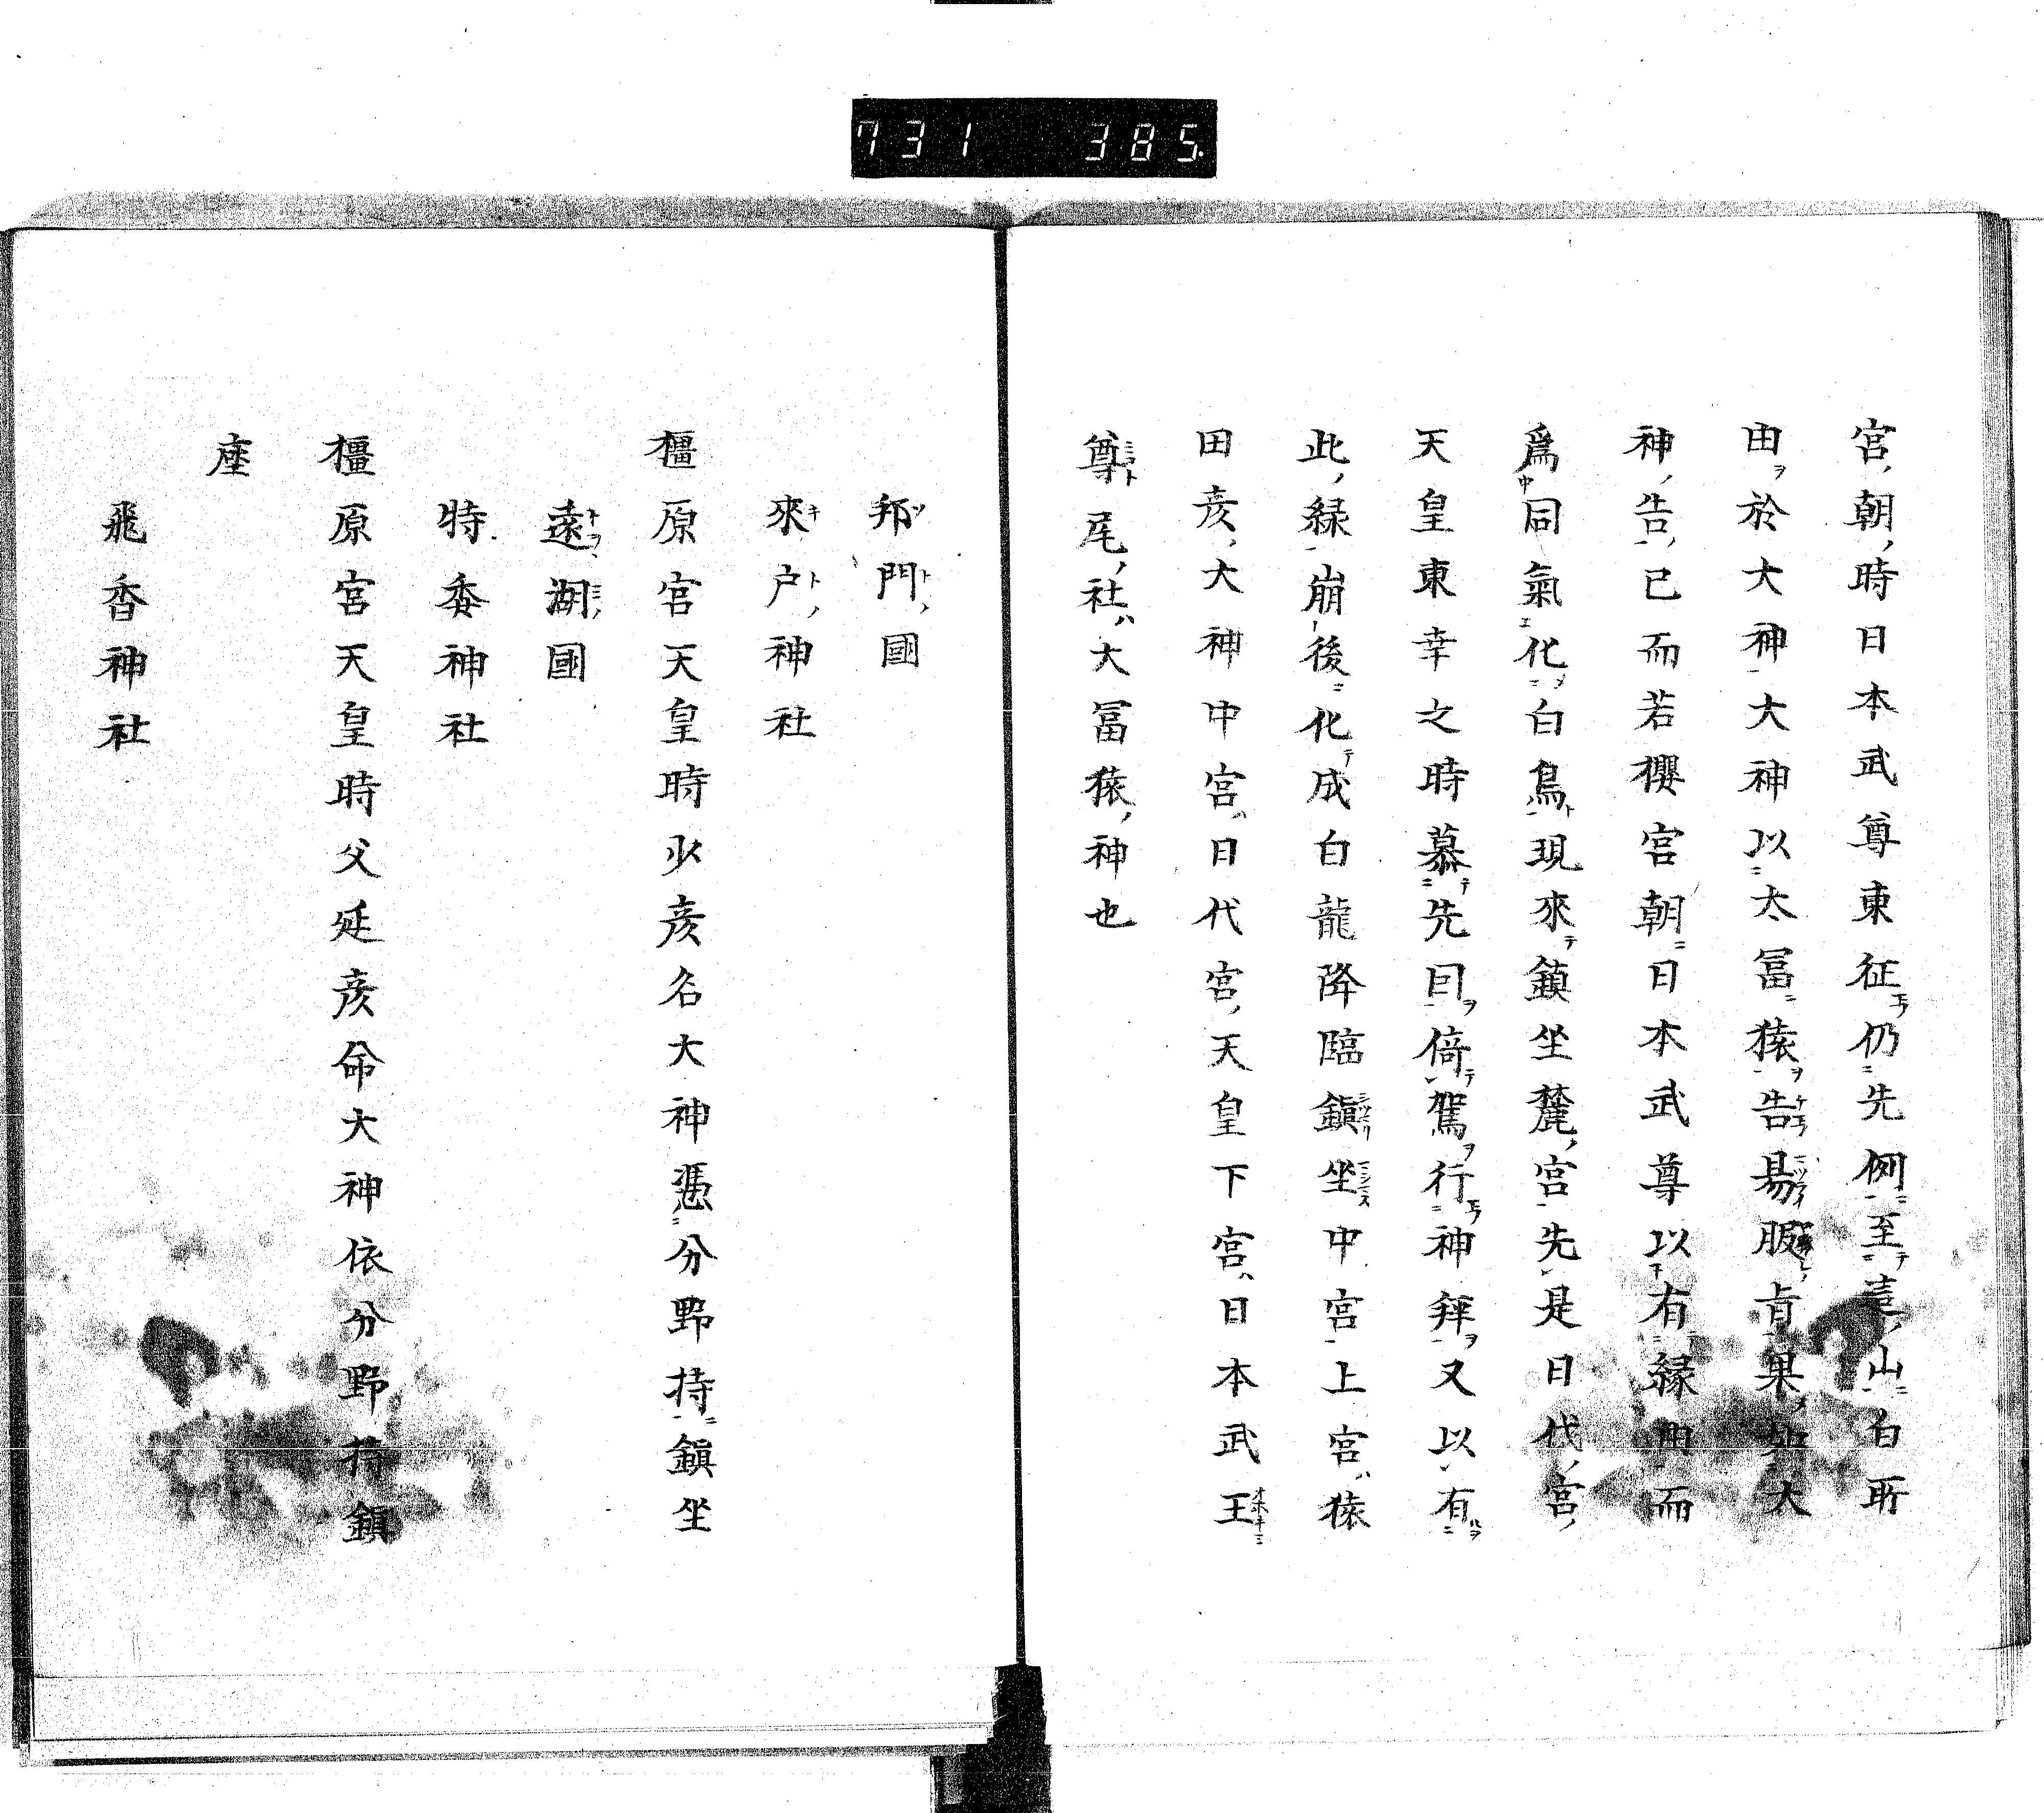 731 385
宮朝時日本武尊東征仍先例至壴山白所
由於大神大神以太冨猿告易服肯果如大
神告已而若櫻宮朝日本武尊以有縁由而
爲同氣化白鳥現來鎮坐麓宮先是日代宮
天皇東幸之時慕先囙倚駕行神拜又以有
此緑崩後化成白龍降臨鎭坐中宮上宮猿
田彦大神中宮日代宮天皇下宮日本武王
尊尾社大冨猿神也
邦門國
來户神社
橿原宮天皇時少彦名大神憑分野持鎭坐
遠湖國
特委神社
橿原宮天皇時父延彦命大神依分野持鎭
座
飛香神社